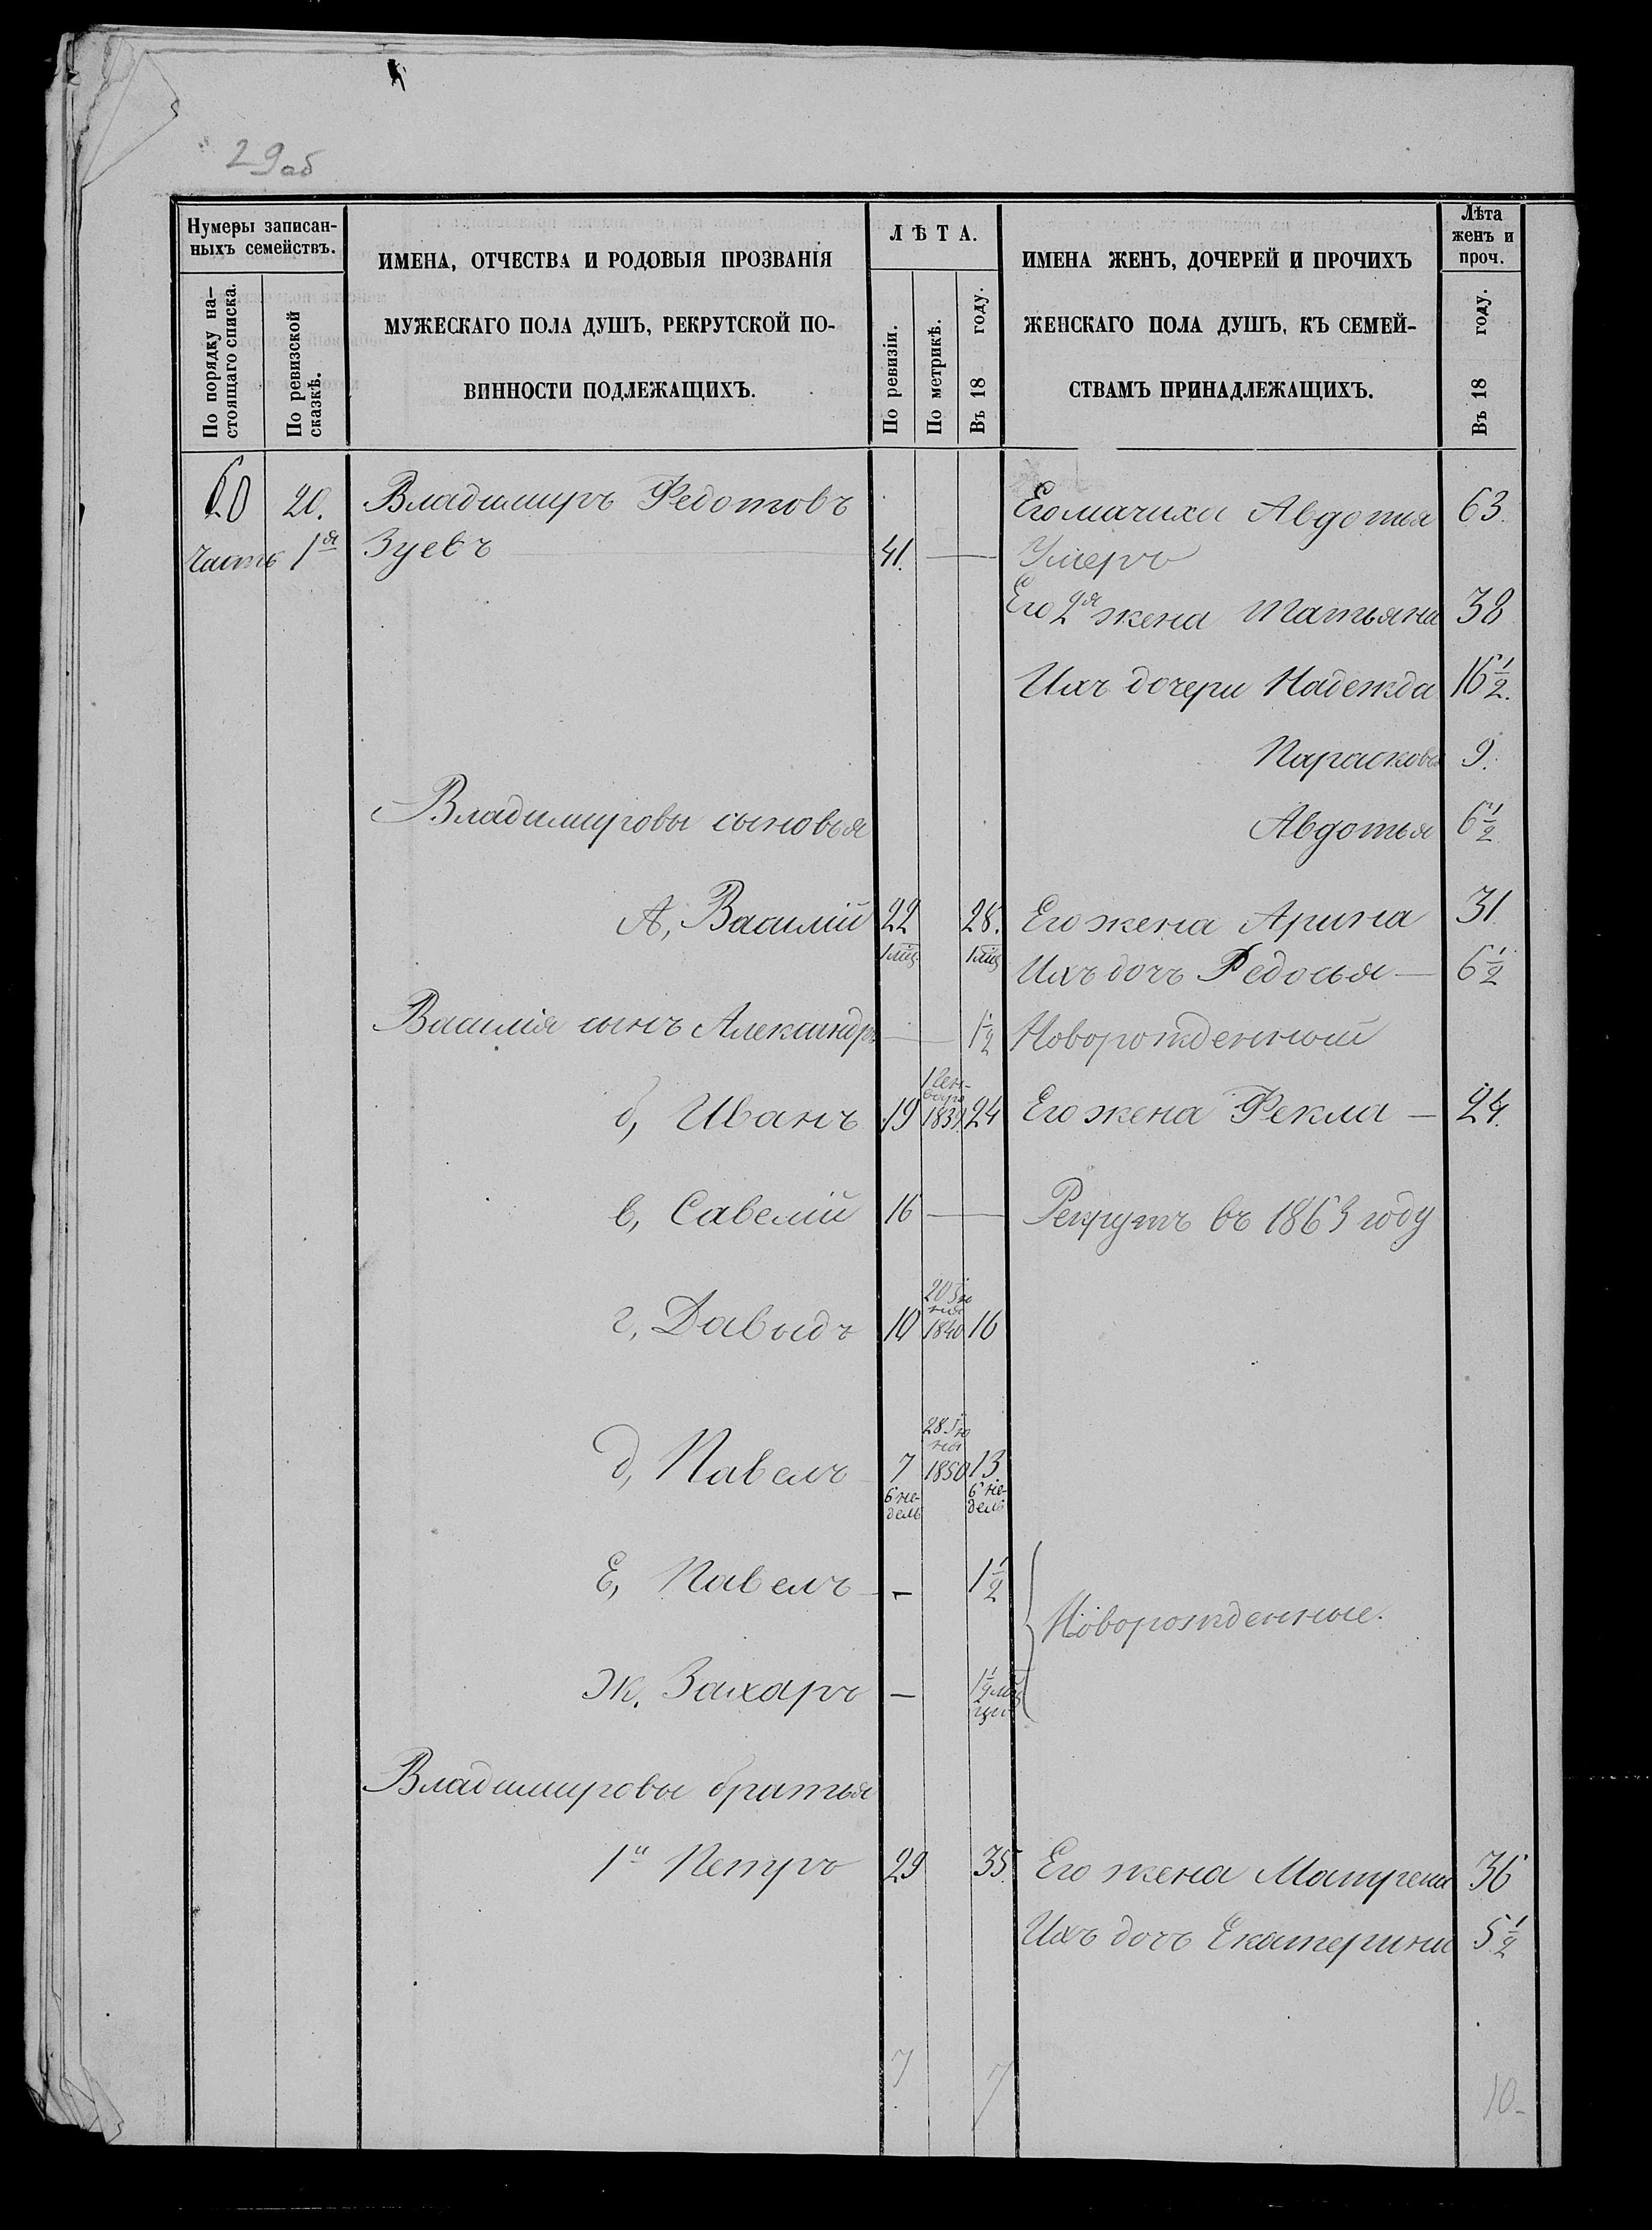 29 об
Нумеры записан-
ныхъ семействъ.
По порядку на-
стоящаго списка.
По ревизской
сказкѣ.
ИМЕНА, ОТЧЕСТВА И РОДОВЫЯ ПРОЗВАНІЯ
МУЖЕСКАГО ПОЛА ДУШЪ, РЕКРУТСКОЙ ПО-
ВИННОСТИ ПОДЛЕЖАЩИХЪ.
ЛѢТА.
По ревизіи.
По метрикѣ.
Въ 18 году.
ИМЕНА ЖЕНЪ, ДОЧЕРЕЙ И ПРОЧИХЪ
ЖЕНСКАГО ПОЛА ДУШЪ, КЪ СЕМЕЙ-
СТВАМЪ ПРИНАДЛЕЖАЩИХЪ.
Лѣта
женъ и
проч.
Въ 18 году.
60 20. Владимиръ Федотовъ Его мачиха Авдотья 63.
часть 1я Зуевъ 41. — Умеръ
Его 2я жена Татьяна 38
Ихъ дочери Надежда 16 1/2.
Парасковья 9.
Владимировы сыновья Авдотья 6 1/2.
А, Василій 22 28. Его жена Арина 31.
1 мц. 1 мц. Ихъ дочь Федосья — 6 1/2
Василія сынъ Александръ — 1 1/2 Новорожденный
1 Ген-
варя
б, Иванъ 19 1839 24 Его жена Фекла — 24.
в, Савелій 16 — Рекрутъ въ 1863 году
20 Ію
ния
г, Давыдъ 10 1840 16
28 Ію
ня
д, Павелъ 7 1850 13
6 не-
дель
6 не-
дель
Е, Павелъ — 1 1/2
Новорожденные.
Ж. Захаръ —
Владимировы братья
1й Петръ 29 35. Его жена Матрена 36
Ихъ дочь Екатерина 5 1/2
7 7 10-